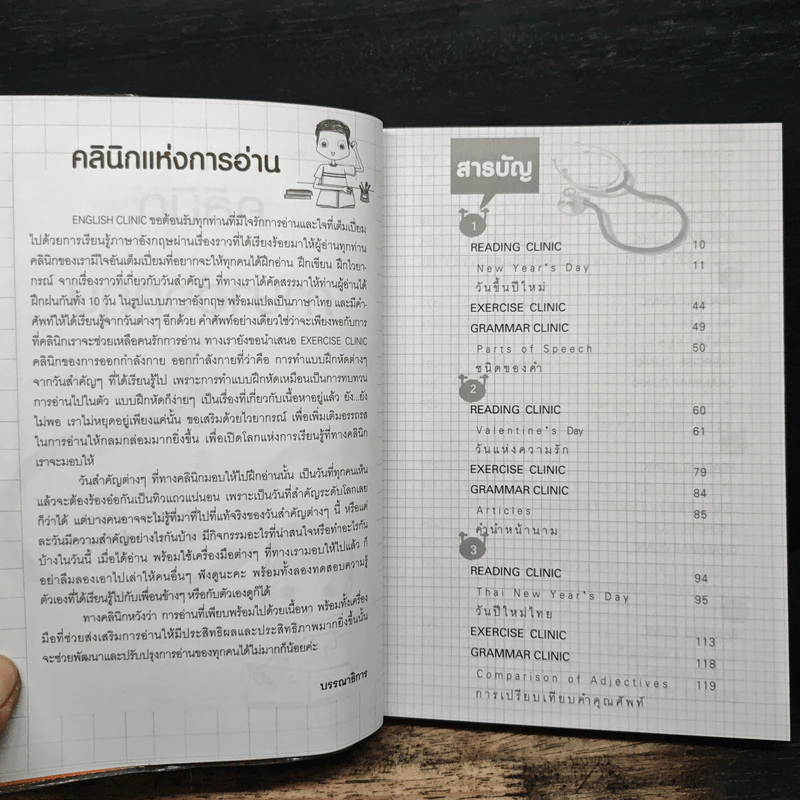 คลินิกแห่งการอ่าน
ENGLISH CLINIC ขอต้อนรับทุกท่านที่มีใจรักการอ่านและใจที่เต็มเปี่ยม
ไปด้วยการเรียนรู้ภาษาอังกฤษผ่านเรื่องราวที่ได้เรียงร้อยมาให้ผู้อ่านทุกท่าน
คลินิกของเรามีใจอันเต็มเปี่ยมที่อยากจะให้ทุกคนได้ฝึกอ่าน ฝึกเขียน ฝึกไวยา-
กรณ์ จากเรื่องราวที่เกี่ยวกับวันสำคัญๆ ที่ทางเราได้คัดสรรมาให้ท่านผู้อ่านได้
ฝึกฝนกันทั้ง 10 วัน ในรูปแบบภาษาอังกฤษ พร้อมแปลเป็นภาษาไทย และมีคำ-
ศัพท์ให้ได้เรียนรู้จากวันต่างๆ อีกด้วย คำศัพท์อย่างเดียวใช่ว่าจะเพียงพอกับการ
ที่คลินิกเราจะช่วยเหลือคนรักการอ่าน ทางเรายังขอนำเสนอ EXERCISE CLINIC
คลินิกของการออกกำลังกาย ออกกำลังกายที่ว่าคือ การทำแบบฝึกหัดต่างๆ
จากวันสำคัญๆ ที่ได้เรียนรู้ไป เพราะการทำแบบฝึกหัดเหมือนเป็นการทบทวน
การอ่านไปในตัว แบบฝึกหัดก็ง่ายๆ เป็นเรื่องที่เกี่ยวกับเนื้อหาอยู่แล้ว ยัง..ยัง
ไม่พอ เราไม่หยุดอยู่เพียงแค่นั้น ขอเสริมด้วยไวยากรณ์ เพื่อเพิ่มเติมอรรถรส
ในการอ่านให้กลมกล่อมมากยิ่งขึ้น เพื่อเปิดโลกแห่งการเรียนรู้ที่ทางคลินิก
เราจะมอบให้
วันสำคัญต่างๆ ที่ทางคลินิกมอบให้ไปฝึกอ่านนั้น เป็นวันที่ทุกคนเห็น
แล้วจะต้องร้องอ๋อกันเป็นทิวแถวแน่นอน เพราะเป็นวันที่สำคัญระดับโลกเลย
ก็ว่าได้ แต่บางคนอาจจะไม่รู้ที่มาที่ไปที่แท้จริงของวันสำคัญต่างๆ นี้ หรือแต่
ละวันมีความสำคัญอย่างไรกันบ้าง มีกิจกรรมอะไรที่น่าสนใจหรือทำอะไรกัน
บ้างในวันนี้ เมื่อได้อ่าน พร้อมใช้เครื่องมือต่างๆ ที่ทางเรามอบให้ไปแล้ว ก็
อย่าลืมลองเอาไปเล่าให้คนอื่นๆ ฟังดูนะคะ พร้อมทั้งลองทดสอบความรู้
ตัวเองที่ได้เรียนรู้ไปกับเพื่อนข้างๆ หรือกับตัวเองดูก็ได้
ทางคลินิกหวังว่า การอ่านที่เพียบพร้อมไปด้วยเนื้อหา พร้อมทั้งเครื่อง
มือที่ช่วยส่งเสริมการอ่านให้มีประสิทธิผลและประสิทธิภาพมากยิ่งขึ้นนั้น
จะช่วยพัฒนาและปรับปรุงการอ่านของทุกคนได้ไม่มากก็น้อยค่ะ
บรรณาธิการ
สารบัญ
1
READING CLINIC 10
New Year's Day 11
วันขึ้นปีใหม่
EXERCISE CLINIC 44
GRAMMAR CLINIC 49
Parts of Speech 50
ชนิดของคำ
2
READING CLINIC 60
Valentine's Day 61
วันแห่งความรัก
EXERCISE CLINIC 79
GRAMMAR CLINIC 84
Articles 85
คำนำหน้านาม
3
READING CLINIC 94
Thai New Year's Day 95
วันปีใหม่ไทย
EXERCISE CLINIC 113
GRAMMAR CLINIC 118
Comparison of Adjectives 119
การเปรียบเทียบคำคุณศัพท์